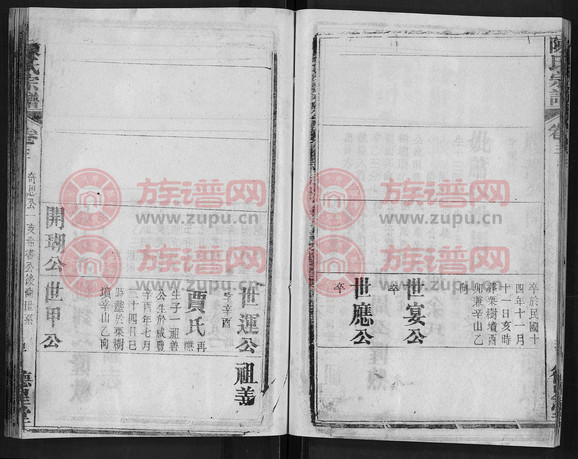 陳氏宗譜
卷三
卒於民國十
四年十一月
十一日亥時
葬栗樹墳酉
卯兼辛山乙
向
世宴公
卒
世應公
卒
陳氏宗譜
卷三
德星堂
世運公
辛酉
祖義
賈氏
再
醮
生子一祖善
公生於咸豐
辛酉年七月
二十四日戌
時葬於栗樹
墳辛山乙向
開瑚公
世甲公
族谱网
www.zupu.cn
族谱网
www.zupu.cn
族谱网
www.zupu.cn
族谱网
www.zupu.cn